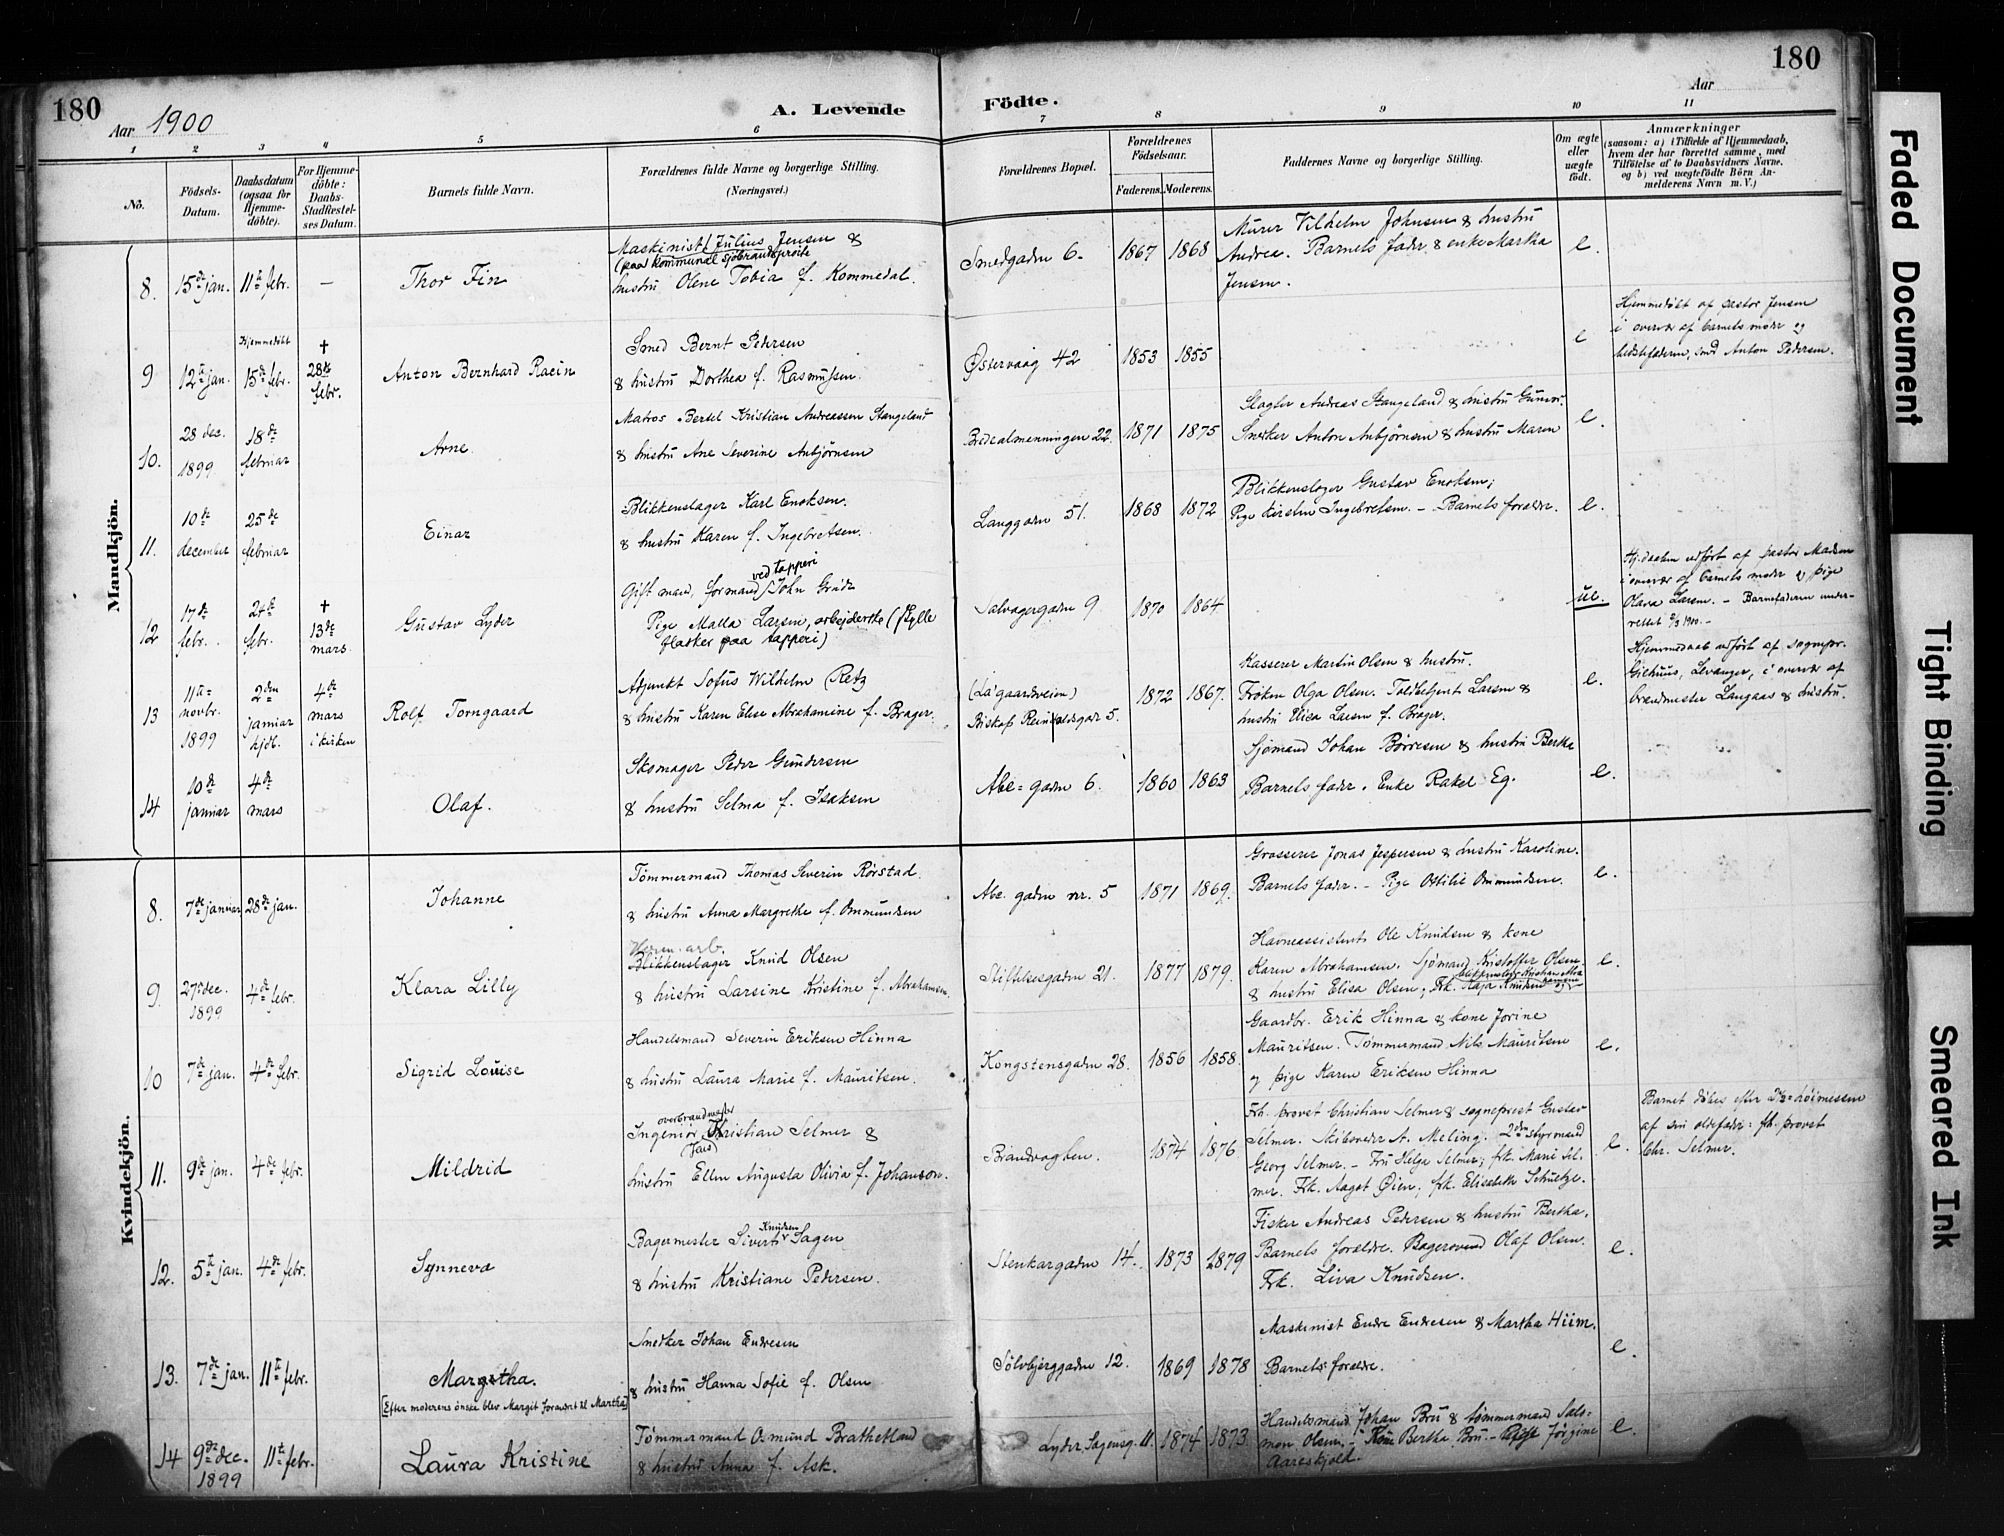 180
180
Aar 1900
A. Levende
Födte.
Aar
1 2 3 4 5 6 7 8 9 10 11
No.
Födsels-Datum.
Daabsdatum (ogsaa for Hjemme-döbte).
For Hjemme-döbte: Daabs-Stadfæstel-ses Datum.
Barnets fulde Navn.
Forældrenes fulde Navne og borgerlige Stilling. (Næringsvei.)
Forældrenes Bopæl.
Forældrenes Födselsaar.
Faderens. Moderens.
Faddernes Navne og borgerlige Stilling.
Om ægte eller uægte födt.
Anmærkninger
(saasom: a) i Tilfælde af Hjemmedaab, hvem der har forrettet samme, med Tilföielse af to Daabsvidners Navne. og b) ved uægtefödte Börn An-melderens Navn m. V.)
Mandkjön.
8. 15de jan. 11te febr. — Thor Fin
Maskinist Julius Jensen &
(paa kommunal sjöbrandspröite
hustru Olene Tobia f. Kommedal.
Smedgaden 6. 1867 1868
Murer Vilhelm Johnsen & hustru
Andrea. Barnets fader & enke Martha
Jensen.
e.
9 12te jan. Hjemmedöbt 15de febr. † 28de febr. Anton Bernhard Racin
Smed Bernt Pedersen
& hustru Dorthea f. Rasmussen.
Østervaag 42 1853 1855
e
Hjemmedöbt af pastor Jensen
i overvær af barnets moder og
bedstefaderen, smed Anton Pedersen.
10. 28 dec. 1899 18de februar Arne
Matros Bertel Kristian Andreassen Stangeland
& hustru Ane Severine Anbjörnsen
Bredealmenningen 22. 1871 1875
Slagter Andreas Stangeland & hustru Gunvor.
Snedker Anton Anbjörnsen & hustru Maren
e.
11. 10de december 25de februar Einar
Blikkenslager Karl Enoksen.
& hustru Karen f. Ingebretsen.
Langgaden 51. 1868 1872
Blikkenslager Gustav Enoksen;
Pige Kirsten Ingebretsen. – Barnets forældre.
e.
12 17de febr. 24de febr. † 13de mars Gustav Lyder
Gift mand, formand ved tapperi John Gride
Pige Malla Larsen, arbejderske (skylle
flasker paa tapperi)
Salvagergaden 9 1870 1864
ue.
Hj.daaben udført af pastor Madsen
i overvær af barnets moder og pige
Olava Larsen. – Barnefaderen under-
rettet 2/3 1900. –
13 11te novbr. 1899 2den januar hjdb. 4de mars i kirken Rolf Torngaard
Adjunkt Sofus Wilhelm Retz
& hustru Karen Elise Abrahamine f. Brager.
(Lagaardveien)
Biskop Reinaldsgade 5. 1872 1867.
Kasserer Martin Olsen & hustru.
Frøken Olga Olsen. Toldbetjent Larsen &
hustru Elisa Larsen f. Brager.
e.
Hjemmedaab udført af sognepr.
Gielhuus, Levanger, i overvær af
brandmester Langaas & hustru.
14 10de januar 4de mars Olaf.
Skomager Peder Gundersen
& hustru Selma f. Isaksen
Abe=gaden 6. 1860 1863
Sjømand Johan Börresen & hustru Bertha
Barnets fader. Enke Rakel Eg.
e.
Kvindekjön.
8. 7de januar 28de jan. Johanne
Tömmermand Thomas Severin Rörstad.
& hustru Anna Margrethe f. Ommundsen
Abe. gaden nr. 5 1871 1869.
Grosserer Jonas Jespersen & hustru Karoline.
Barnets fader. – Pige Ottilie Ommundsen.
e.
9. 27de dec. 1899 4de febr. Klara Lilly
Blikkenslager Knud Olsen
& hustru Larsine Kristine f. Abrahamsen.
Stiftelsesgaden 21. 1877 1879.
Havneassistent Ole Knudsen & kone
Karen Abrahamsen. Sjömand Kristoffer Olsen
& hustru Elisa Olsen; Frk. Kaja Knudsen
e.
10 7de jan. 4de febr. Sigrid Louise
Handelsmand Severin Eriksen Hinna
& hustru Laura Marie f. Mauritsen.
Kongstensgaden 28. 1856 1858.
Gaardbr. Erik Hinna & kone Jorine
Mauritsen. Tömmermand Nils Mauritsen
og pige Karen Eriksen Hinna
e.
11. 9de jan. 4de febr. Mildrid
overbrandmester
Ingeniør Kristian Selmer &
hustru Ellen Augusta Olivia f. Johanson.
Brandvagten. 1874 1876
Frh. provst Christian Selmer & sogneprest Gustav
Selmer. Skibsreder A. Meling. 2den styrmand
Georg Selmer. – Fru Helga Selmer; frk. Marie Sel-
mer. Frk. Aagot Øien; frk. Elisabeth Schulze.
e.
Barnet döbes efter høimessen
af sin oldefader: fh. provst
Chr. Selmer.
12. 5te jan. 4de febr. Synneva
Bagermester Sivert Knudsen Sagen
& hustru Kristiane Pedersen.
Stenkargaden 14. 1873 1879
Fisker Andreas Pedersen & hustru Bertha.
Barnets forældre. Bagersvend Olaf Olsen.
Frk. Liva Knudsen.
e.
13. 7de jan. 11te febr. Margetha.
[Efter moderens ønske blev Margit forandret til Martha]
Snedker Johan Endresen
& hustru Hanna Sofie f. Olsen
Sölvbjerggaden 12. 1869 1878
Maskinist Endre Endresen & Martha Hiim.
Barnets forældre.
e.
14 9de dec. 1899 11te febr. Laura Kristine
Tömmermand Osmund Brathetland
& hustru Anna f. Ask.
Lyder Sagensg. 11. 1874 1873
Handelsmand Johan Bru & tömmermand Salo-
mon Olsen. – Kone Bertha Bru. – Pige Jörgine
Aareskjold.
e.
Faded Document
Tight Binding
Smeared Ink